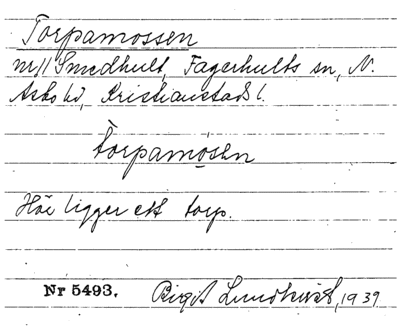 Torpamossen
m/l Smedhult, Fagerhults sn, N.
Åsbo hd, Kristianstads l.
torpamosen
Här ligger ett torp.
Nr 5493. Birgit Lundkvist, 1939